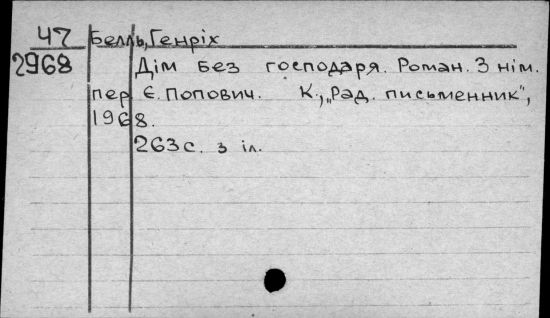 47 Белль, Генріх
2968 Дім без господаря. Роман. З нім.
пер Є. Попович. К., „Рад. письменник",
1968.
263 с. з іл.